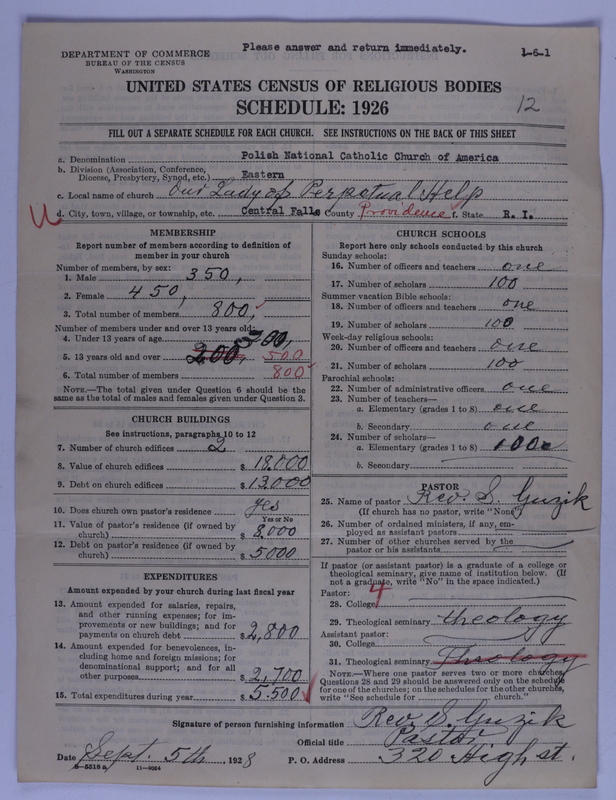 Please answer and return immediately.
1-6-1
DEPARTMENT OF COMMERCE
BUREAU OF THE CENSUS
WASHINGTON
UNITED STATES CENSUS OF RELIGIOUS BODIES
SCHEDULE: 1926
12
FILL OUT A SEPARATE SCHEDULE FOR EACH CHURCH. SEE INSTRUCTIONS ON THE BACK OF THIS SHEET
a. Denomination Polish National Catholic Church of America
b. Division (Association, Conference, Diocese, Presbytery, Synod, etc.) Eastern
c. Local name of church Our Lady of Perpetual Help
d. City, town, village, or township, etc. Central Falls County Providence f. State R. I.
MEMBERSHIP
Report number of members according to definition of
member in your church
Number of members, by sex:
1. Male 350,
2. Female 450,
3. Total number of members 800,
Number of members under and over 13 years old:
4. Under 13 years of age 300,
5. 13 years old and over 200, 500
6. Total number of members 800
NOTE.—The total given under Question 6 should be the
same as the total of males and females given under Question 3.
CHURCH BUILDINGS
See instructions, paragraphs 10 to 12
7. Number of church edifices 2
8. Value of church edifices $ 18,000
9. Debt on church edifices $ 13,000
10. Does church own pastor's residence yes
Yes or No
11. Value of pastor's residence (if owned by
church) $ 8,000
12. Debt on pastor's residence (if owned by
church) $ 5000
EXPENDITURES
Amount expended by your church during last fiscal year
13. Amount expended for salaries, repairs,
and other running expenses; for im-
provements or new buildings; and for
payments on church debt $ 2,800
14. Amount expended for benevolences, in-
cluding home and foreign missions; for
denominational support; and for all
other purposes $ 2,700
15. Total expenditures during year $ 5.500
CHURCH SCHOOLS
Report here only schools conducted by this church
Sunday schools:
16. Number of officers and teachers one
17. Number of scholars 100
Summer vacation Bible schools:
18. Number of officers and teachers one
19. Number of scholars 100
Week-day religious schools:
20. Number of officers and teachers one
21. Number of scholars 100
Parochial schools:
22. Number of administrative officers one
23. Number of teachers—
a. Elementary (grades 1 to 8) one
b. Secondary one
24. Number of scholars—
a. Elementary (grades 1 to 8)
b. Secondary
PASTOR
25. Name of pastor Rev. S. Guzik
(If church has no pastor, write "None")
26. Number of ordained ministers, if any, em-
ployed as assistant pastors
27. Number of other churches served by the
pastor or his assistants
If pastor (or assistant pastor) is a graduate of a college or
theological seminary, give name of institution below. (If
not a graduate, write "No" in the space indicated.)
Pastor: 4
28. College
29. Theological seminary theology
Assistant pastor:
30. College
31. Theological seminary Theology
NOTE.—Where one pastor serves two or more churches,
Questions 28 and 29 should be answered only on the schedule
for one of the churches; on the schedules for the other churches,
write "See schedule for church."
Signature of person furnishing information Rev. S. Guzik
Official title Pastor
Date Sept. 5th, 1928 P. O. Address 320 High st.
8-5518 a 11-9064